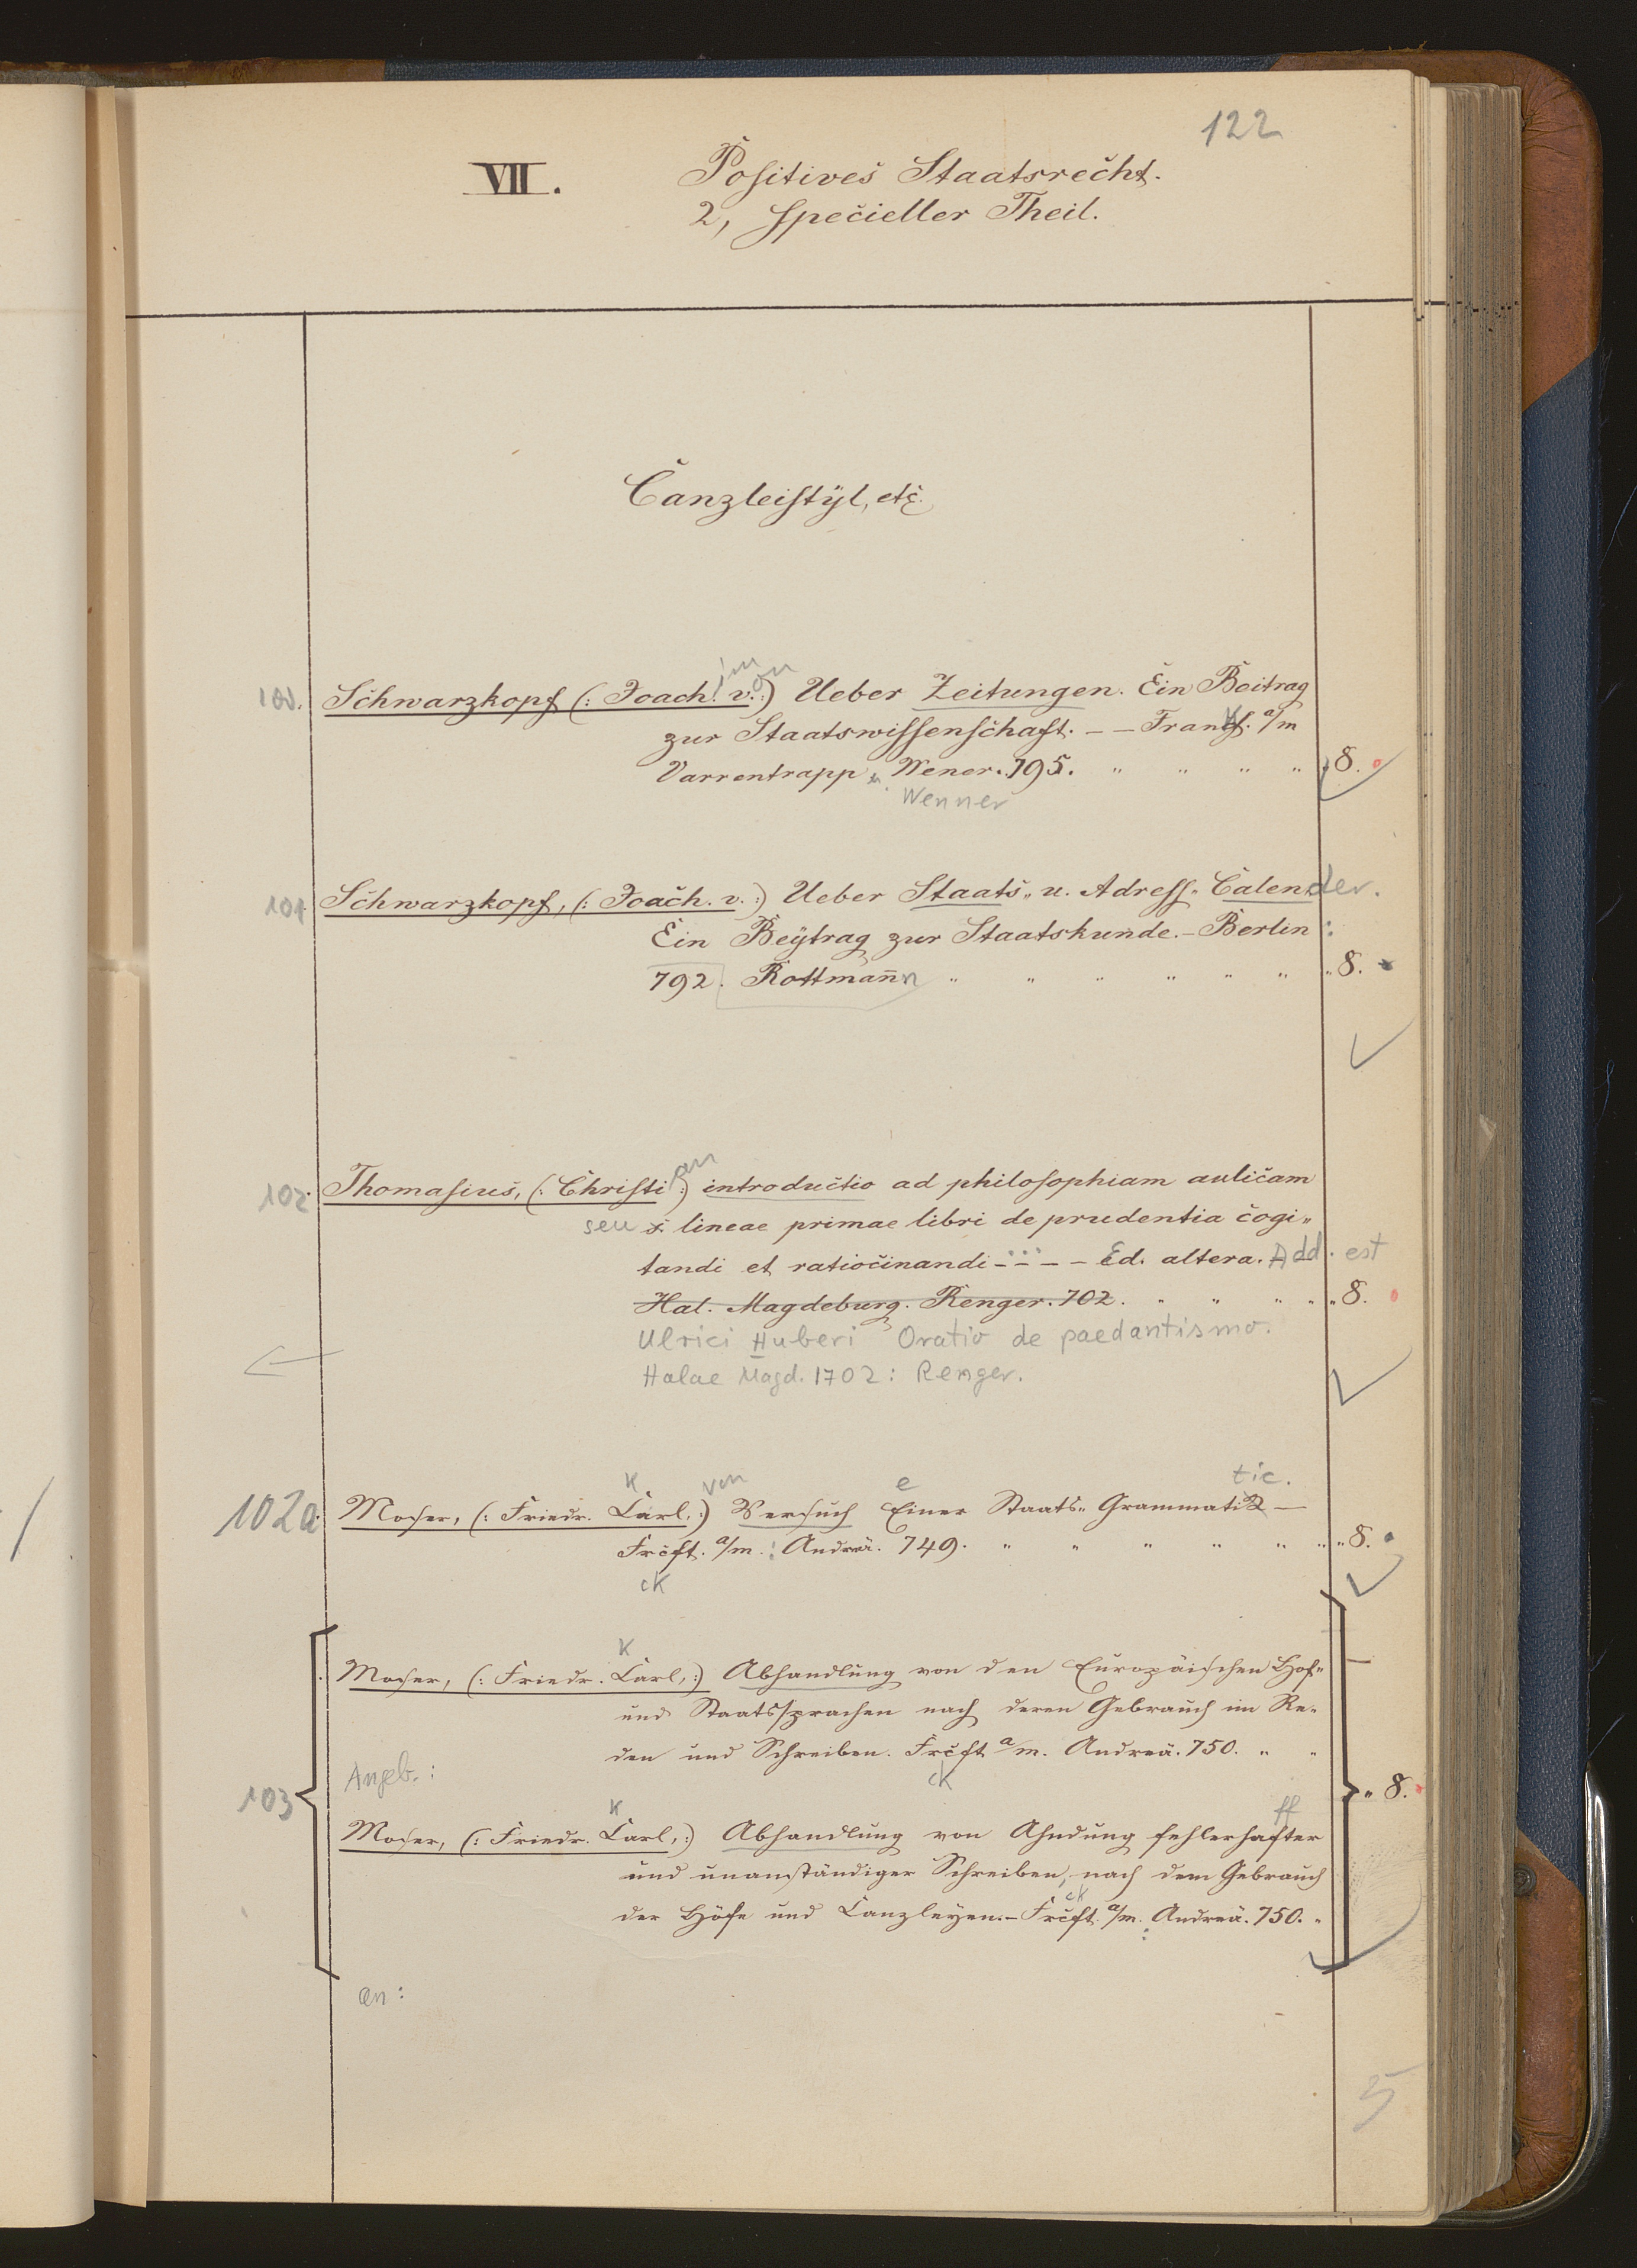 122
VII. Positives Staatsrecht.
2, specieller Theil.
Canzleistÿl, etc.
100. Schwarzkopf (: Joach. im v. on :) Ueber Zeitungen. Ein Beitrag
zur Staatswissenschaft. — — Frankf. a/m
Varrentrapp u. Wener. 795. " " " " 8.
Wenner
101. Schwarzkopf, (: Joach. v. :) Ueber Staats„ u. Adress„ Calender.
Ein Beÿtrag zur Staatskunde. — Berlin :
792. Rottmann " " " " " " " 8.
an
102. Thomasius, (: Christi :) introductio ad philosophiam aulicam
seu s. lineae primae libri de prudentia cogi„
tandi et ratiocinandi — — — — Ed. altera. Add. est
Hal. Magdeburg. Renger. 702. " " " " " 8.
Ulrici Huberi Oratio de paedantismo.
Halae Magd. 1702 : Renger.
K von e tic.
102a Moser, (: Friedr. Carl, :) Versuch Einer Staats„ Grammatik —
Frcft. a/m. : Andreä. 749. " " " " " " " 8.
ck
K
Moser, (: Friedr. Carl, :) Abhandlung von den Europäischen Hof„
und Staatssprachen nach deren Gebrauch im Re„
den und Schreiben. Frcft a/m. Andreä. 750. " "
Angeb. : ck
103 " 8.
K ff
Moser, (: Friedr. Carl, :) Abhandlung von Ahndung fehlerhafter
und unanständiger Schreiben, nach dem Gebrauch
ck
der Höfe und Canzleyen. — Frcft. a/m. : Andreä. 750. "
an :
5